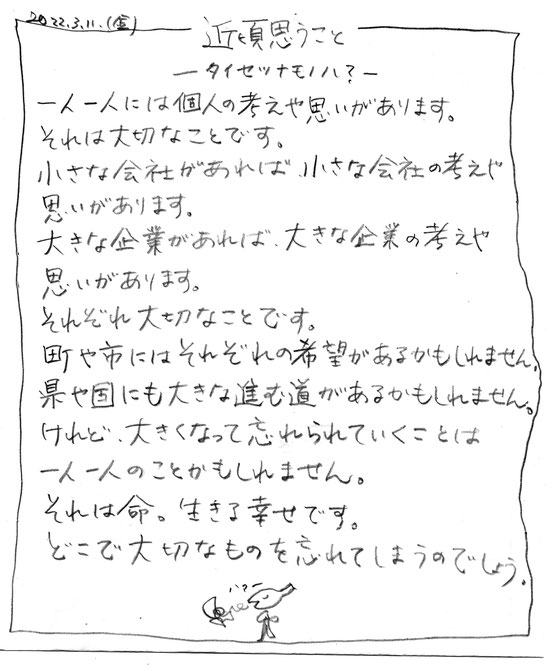 2022.3.11.(金)
近頃思うこと
ータイセツナモノハ?ー
一人一人には個人の考えや思いがあります。
それは大切なことです。
小さな会社があれば、小さな会社の考えや
思いがあります。
大きな企業があれば、大きな企業の考えや
思いがあります。
それぞれ大切なことです。
町や市にはそれぞれの希望があるかもしれません。
県や国にも大きな進む道があるかもしれません。
けれど、大きくなって忘れられていくことは
一人一人のことかもしれません。
それは命。生きる幸せです。
どこで大切なものを忘れてしまうのでしょう。
ハァー